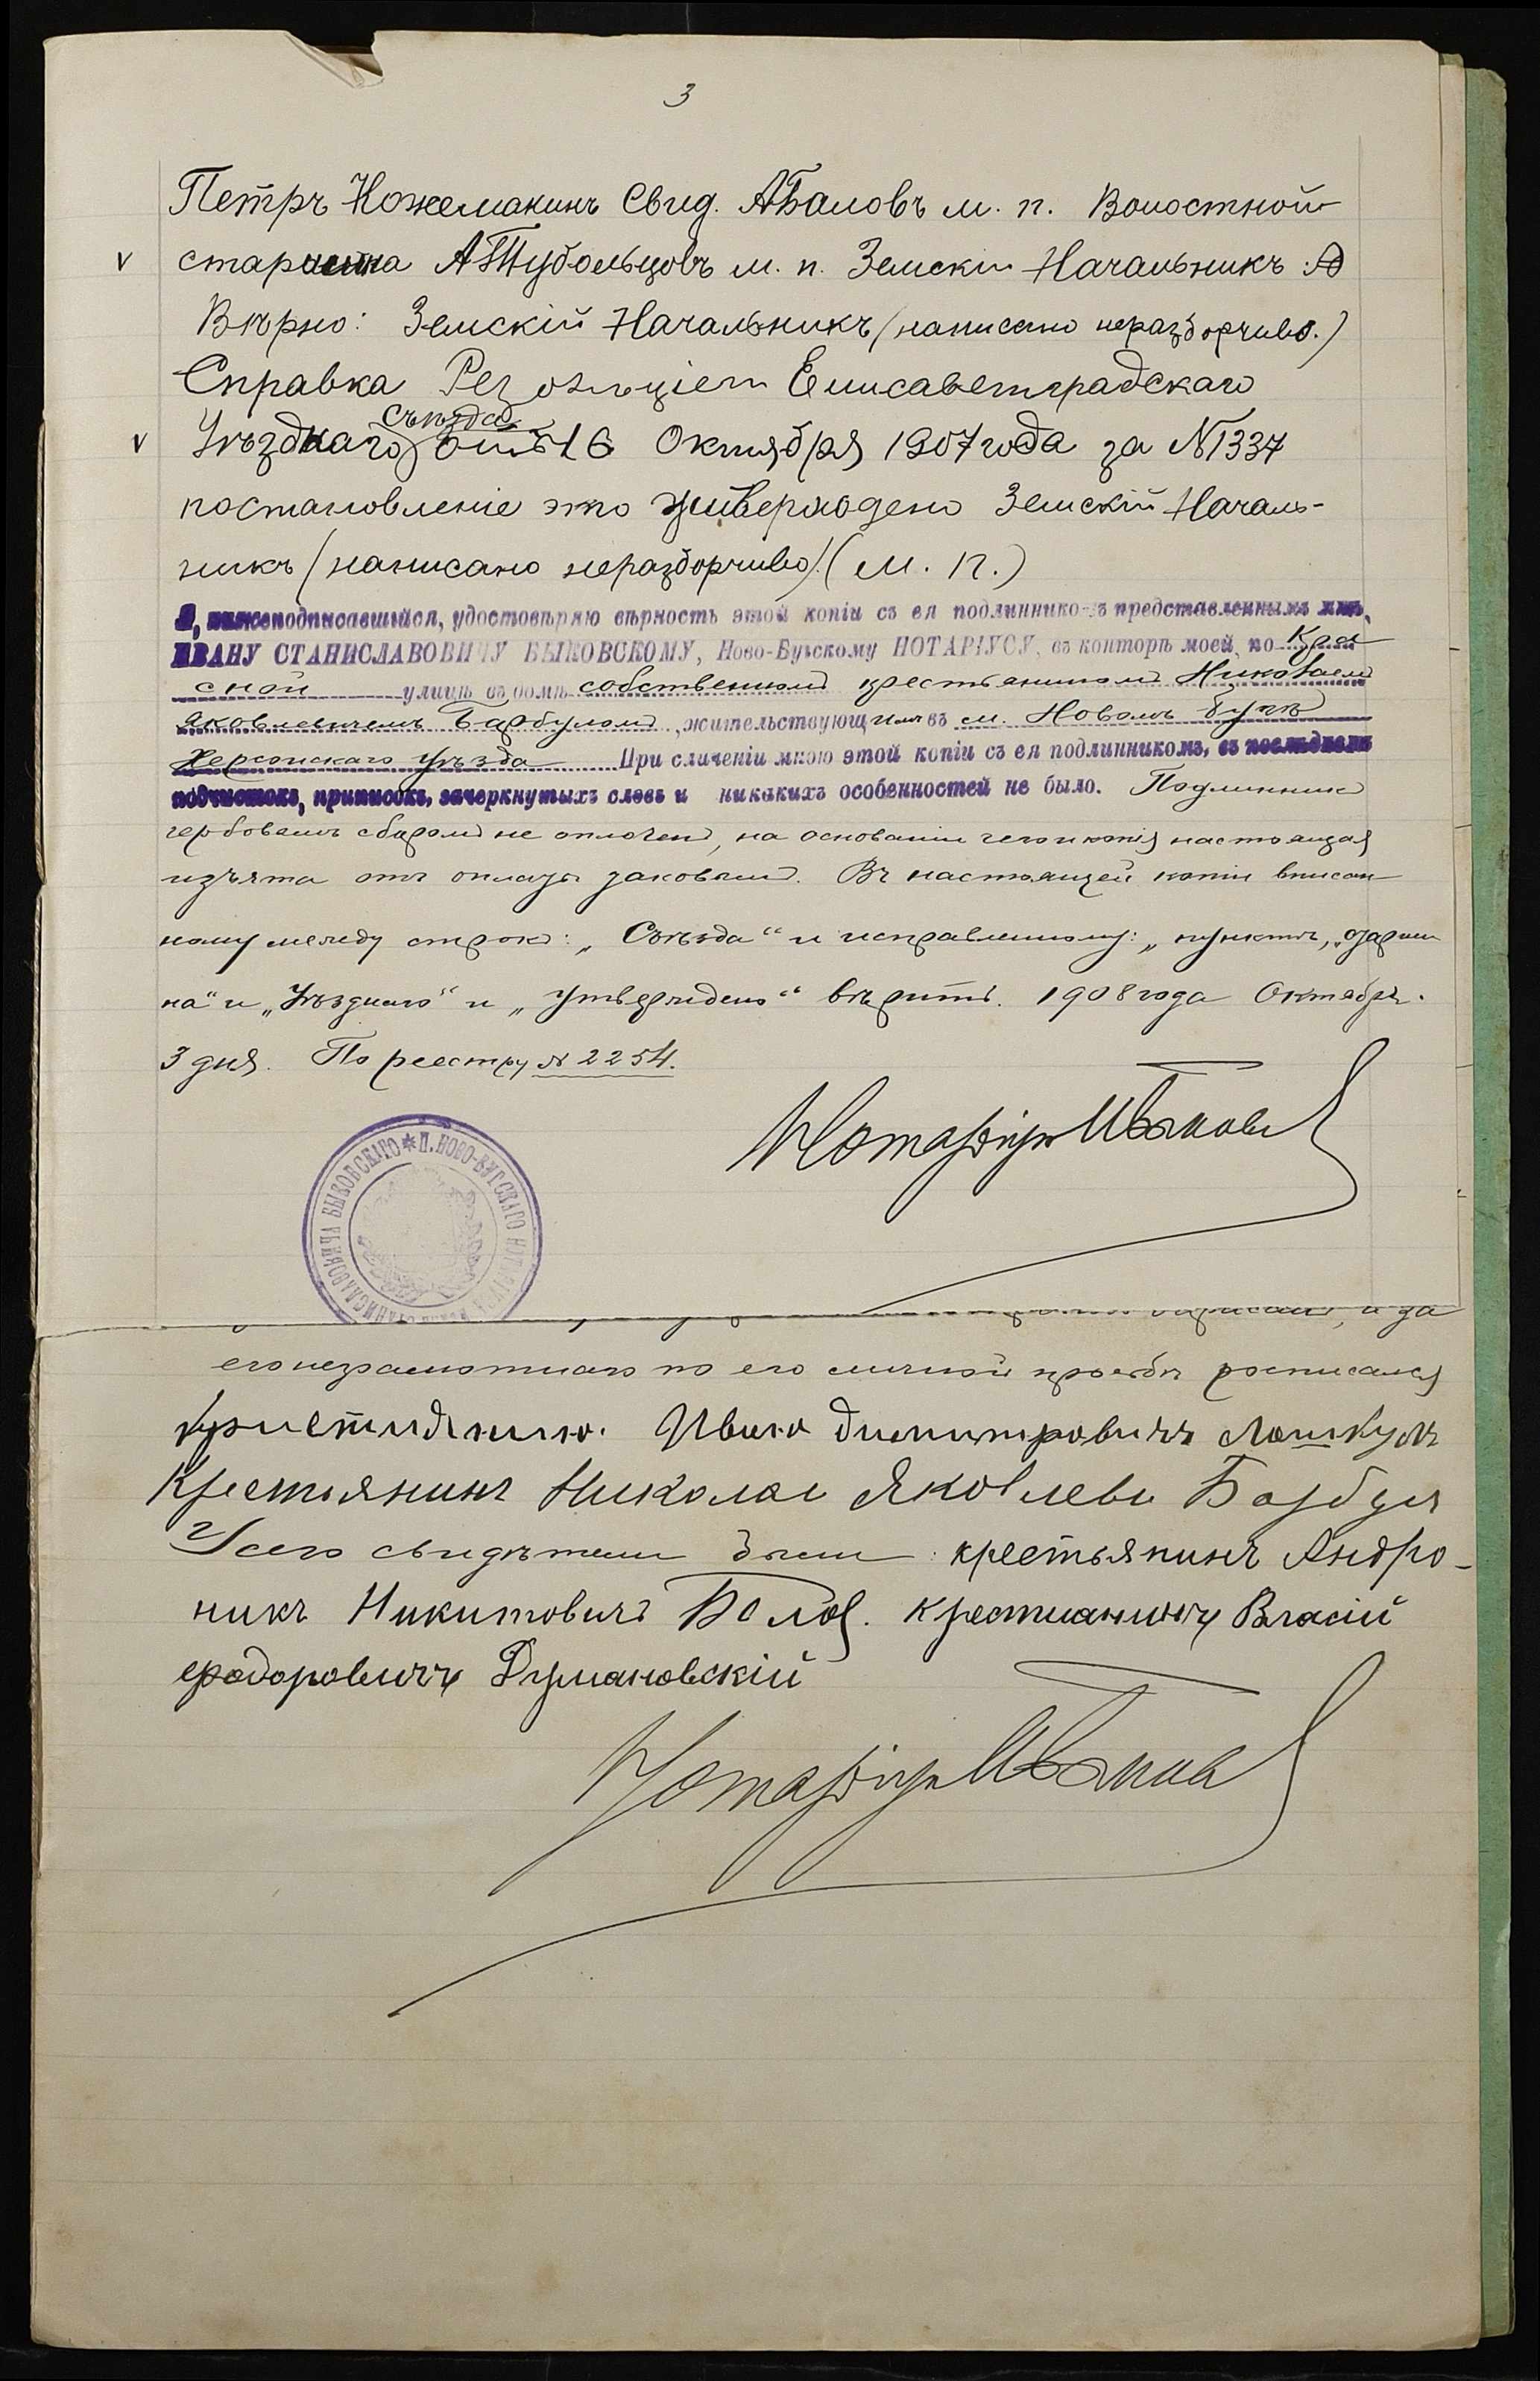 3
Петръ Кожемакинъ Свид. АБаловъ м. п. Волостной
v старшина АТТубольцовъ м. п. Земскій Начальникъ
Вѣрно: Земскій Начальникъ (написано неразборчиво.)
Справка Резолюціей Елисаветградскаго
Съѣзда
v Уѣзднаго отъ 16 Октября 1907 года за №1337
постановленіе это утверждено Земскій Началь-
никъ (написано неразборчиво) (М. П.)
Я, нижеподписавшійся, удостовѣряю вѣрность этой копіи съ ея подлинникомъ представленнымъ мнѣ,
ИВАНУ СТАНИСЛАВОВИЧУ БЫКОВСКОМУ, Ново-Бугскому НОТАРІУСУ, въ конторѣ моей, по Кра
сной улицѣ въ домѣ собственномъ крестьяниномъ Николаемъ
Яковлевичемъ Барбуломъ, жительствующимъ въ м. Новомъ Бугѣ
Херсонскаго уѣзда При сличеніи мною этой копіи съ ея подлинникомъ, въ послѣднемъ
подчистокъ, приписокъ, зачеркнутыхъ словъ и никакихъ особенностей не было. Подлинникъ
гербовымъ сборомъ не оплоченъ, на основаніи чего и копія настоящая
изъята отъ оплаты таковымъ. Въ настоящей копіи вписан
ному между строкъ: „Съѣзда“ и исправленному: „пунктъ, „старши
на“ и „Уѣзднаго“ и „утверждено“ вѣрить. 1908 года Октября
3 дня. По реестру № 2254.
Нотаріусъ ИБыковс
ИВАНА СТАНИСЛАВОВИЧА БЫКОВСКАГО * П. НОВО-БУГСКАГО НОТАРІУСА
и за
его неграмотнаго по его личной просьбѣ росписался
Ивано Димитровичъ Лошкулъ
Крестьянинъ Николаи Яковлевъ Барбулъ
У сего свидѣтели были: крестьянинъ Андро-
никъ Никитовичъ крестианинъ Власій
Федоровичъ Думановскій
Нотаріусъ ИБыковс